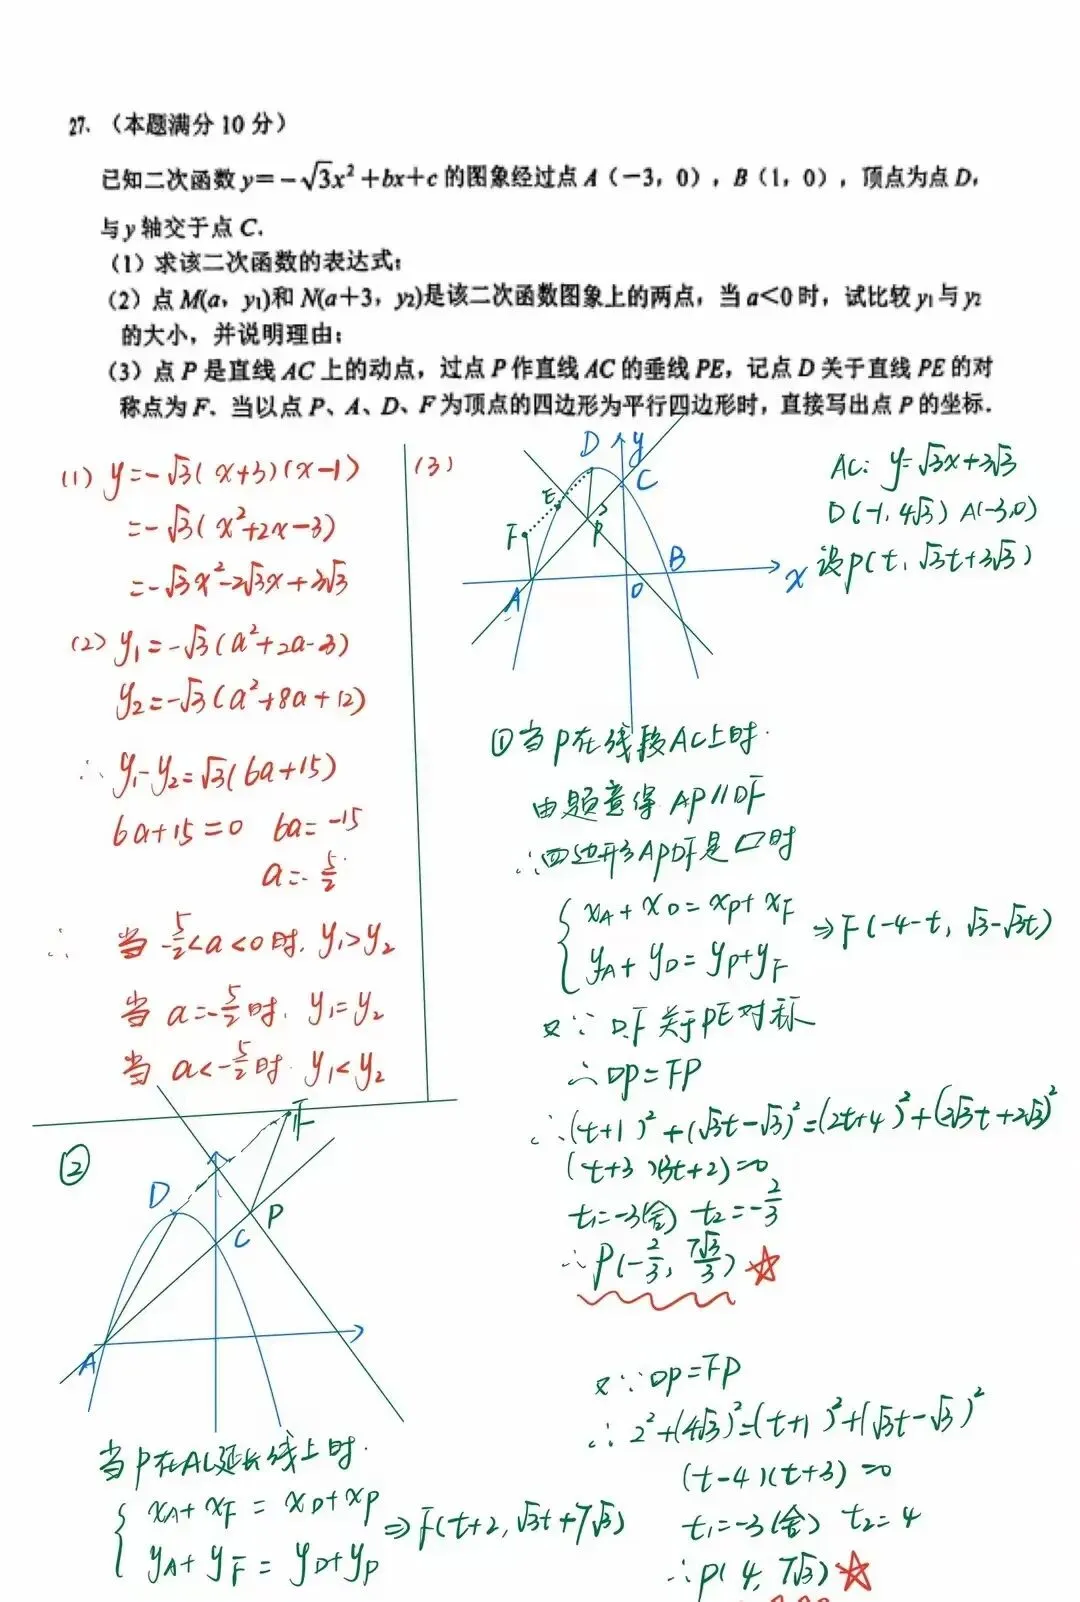 27. （本题满分 10 分）
已知二次函数 y=-√3x²+bx+c 的图象经过点 A（-3，0），B（1，0），顶点为点 D，
与 y 轴交于点 C.
（1）求该二次函数的表达式；
（2）点 M(a，y₁)和 N(a+3，y₂)是该二次函数图象上的两点，当 a<0 时，试比较 y₁ 与 y₂
的大小，并说明理由；
（3）点 P 是直线 AC 上的动点，过点 P 作直线 AC 的垂线 PE，记点 D 关于直线 PE 的对
称点为 F. 当以点 P、A、D、F 为顶点的四边形为平行四边形时，直接写出点 P 的坐标.
(1) y=-√3(x+3)(x-1)
=-√3(x²+2x-3)
=-√3x²-2√3x+3√3
(2) y₁=-√3(a²+2a-3)
y₂=-√3(a²+8a+12)
∴ y₁-y₂=√3(6a+15)
6a+15=0 6a=-15
a=-5/2
∴ 当-5/2<a<0时. y₁>y₂
当 a=-5/2时. y₁=y₂
当 a<-5/2时. y₁<y₂
(3)
D y
C
E
F
P
B
A
O
x
AC: y=√3x+3√3
D(-1, 4√3) A(-3,0)
设P(t, √3t+3√3)
①当P在线段AC上时.
由题意得 AP∥DF
∴四边形APDF是▱时
{ xA+xD=xP+xF
yA+yD=yP+yF
⇒F(-4-t, √3-√3t)
又∵ D.F关于PE对称
∴DP=FP
∴(t+1)²+(√3t-√3)²=(2t+4)²+(2√3t+2√3)²
(t+3)(3t+2)=0
t₁=-3(舍) t₂=-2/3
∴P(-2/3, 7√3/3)☆
②
F
D
P
C
A
当P在AC延长线上时.
{ xA+xF=xD+xP
yA+yF=yD+yP
⇒F(t+2, √3t+7√3)
又∵DP=FP
∴2²+(4√3)²=(t+1)²+(√3t-√3)²
(t-4)(t+3)=0
t₁=-3(舍) t₂=4
∴P(4, 7√3)☆